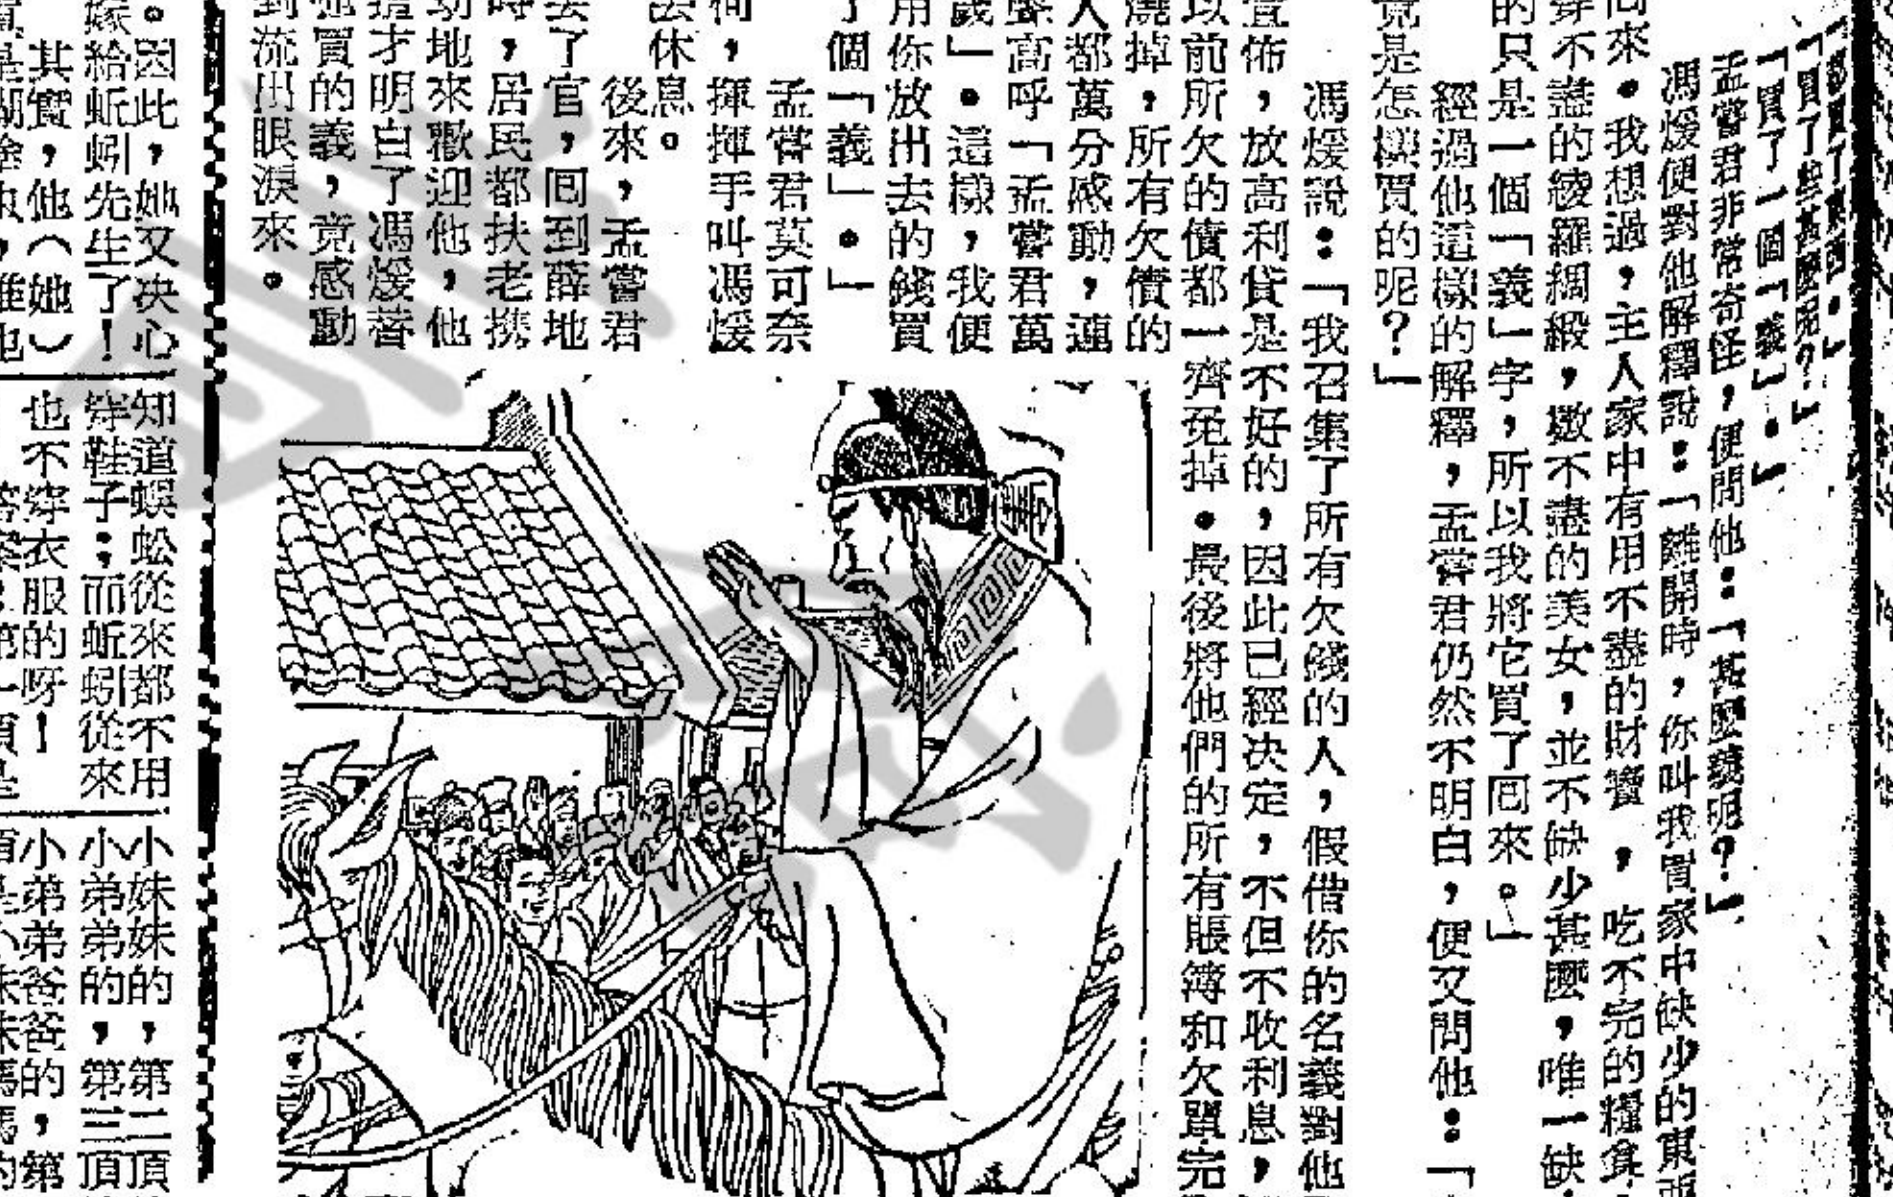 「都買了東西。」
「買了些甚麼呢？」
「買了一個「義」。」
孟嘗君非常奇怪，便問他：「甚麼義呢？」
馮煖便對他解釋說：「離開時，你叫我買家中缺少的東西
回來。我想過，主人家中有用不盡的財寶，吃不完的糧食，
穿不盡的綾羅綢緞，數不盡的美女，並不缺少甚麼，唯一缺
的只是一個「義」字，所以我將它買了囘來。」
經過他這樣的解釋，孟嘗君仍然不明白，便又問他：「
竟是怎樣買的呢？」
馮煖說：「我召集了所有欠錢的人，假借你的名義對他
宣佈，放高利貸是不好的，因此已經决定，不但不收利息，
以前所欠的債都一齊免掉。最後將他們的所有賬簿和欠單完
燒掉，所有欠債的
人都萬分感動，連
聲高呼「孟嘗君萬
歲」。這樣，我便
用你放出去的錢買
了個「義」。」
孟嘗君莫可奈
何，揮揮手叫馮煖
去休息。
後來，孟嘗君
丟了官，囘到薛地
時，居民都扶老携
幼地來歡迎他，他
這才明白了馮煖替
他買的義，竟感動
到流出眼淚來。
。因此，她又决心
嫁給蚯蚓先生了！
其實，他（她）
是糊塗虫，誰也
知道蜈蚣從來都不用
穿鞋子；而蚯蚓從來
也不穿衣服的呀！
答案：第一頂是
小妹妹的，第二頂
小弟弟的，第三頂
小弟弟爸爸的，第
頂是小妹妹媽媽的